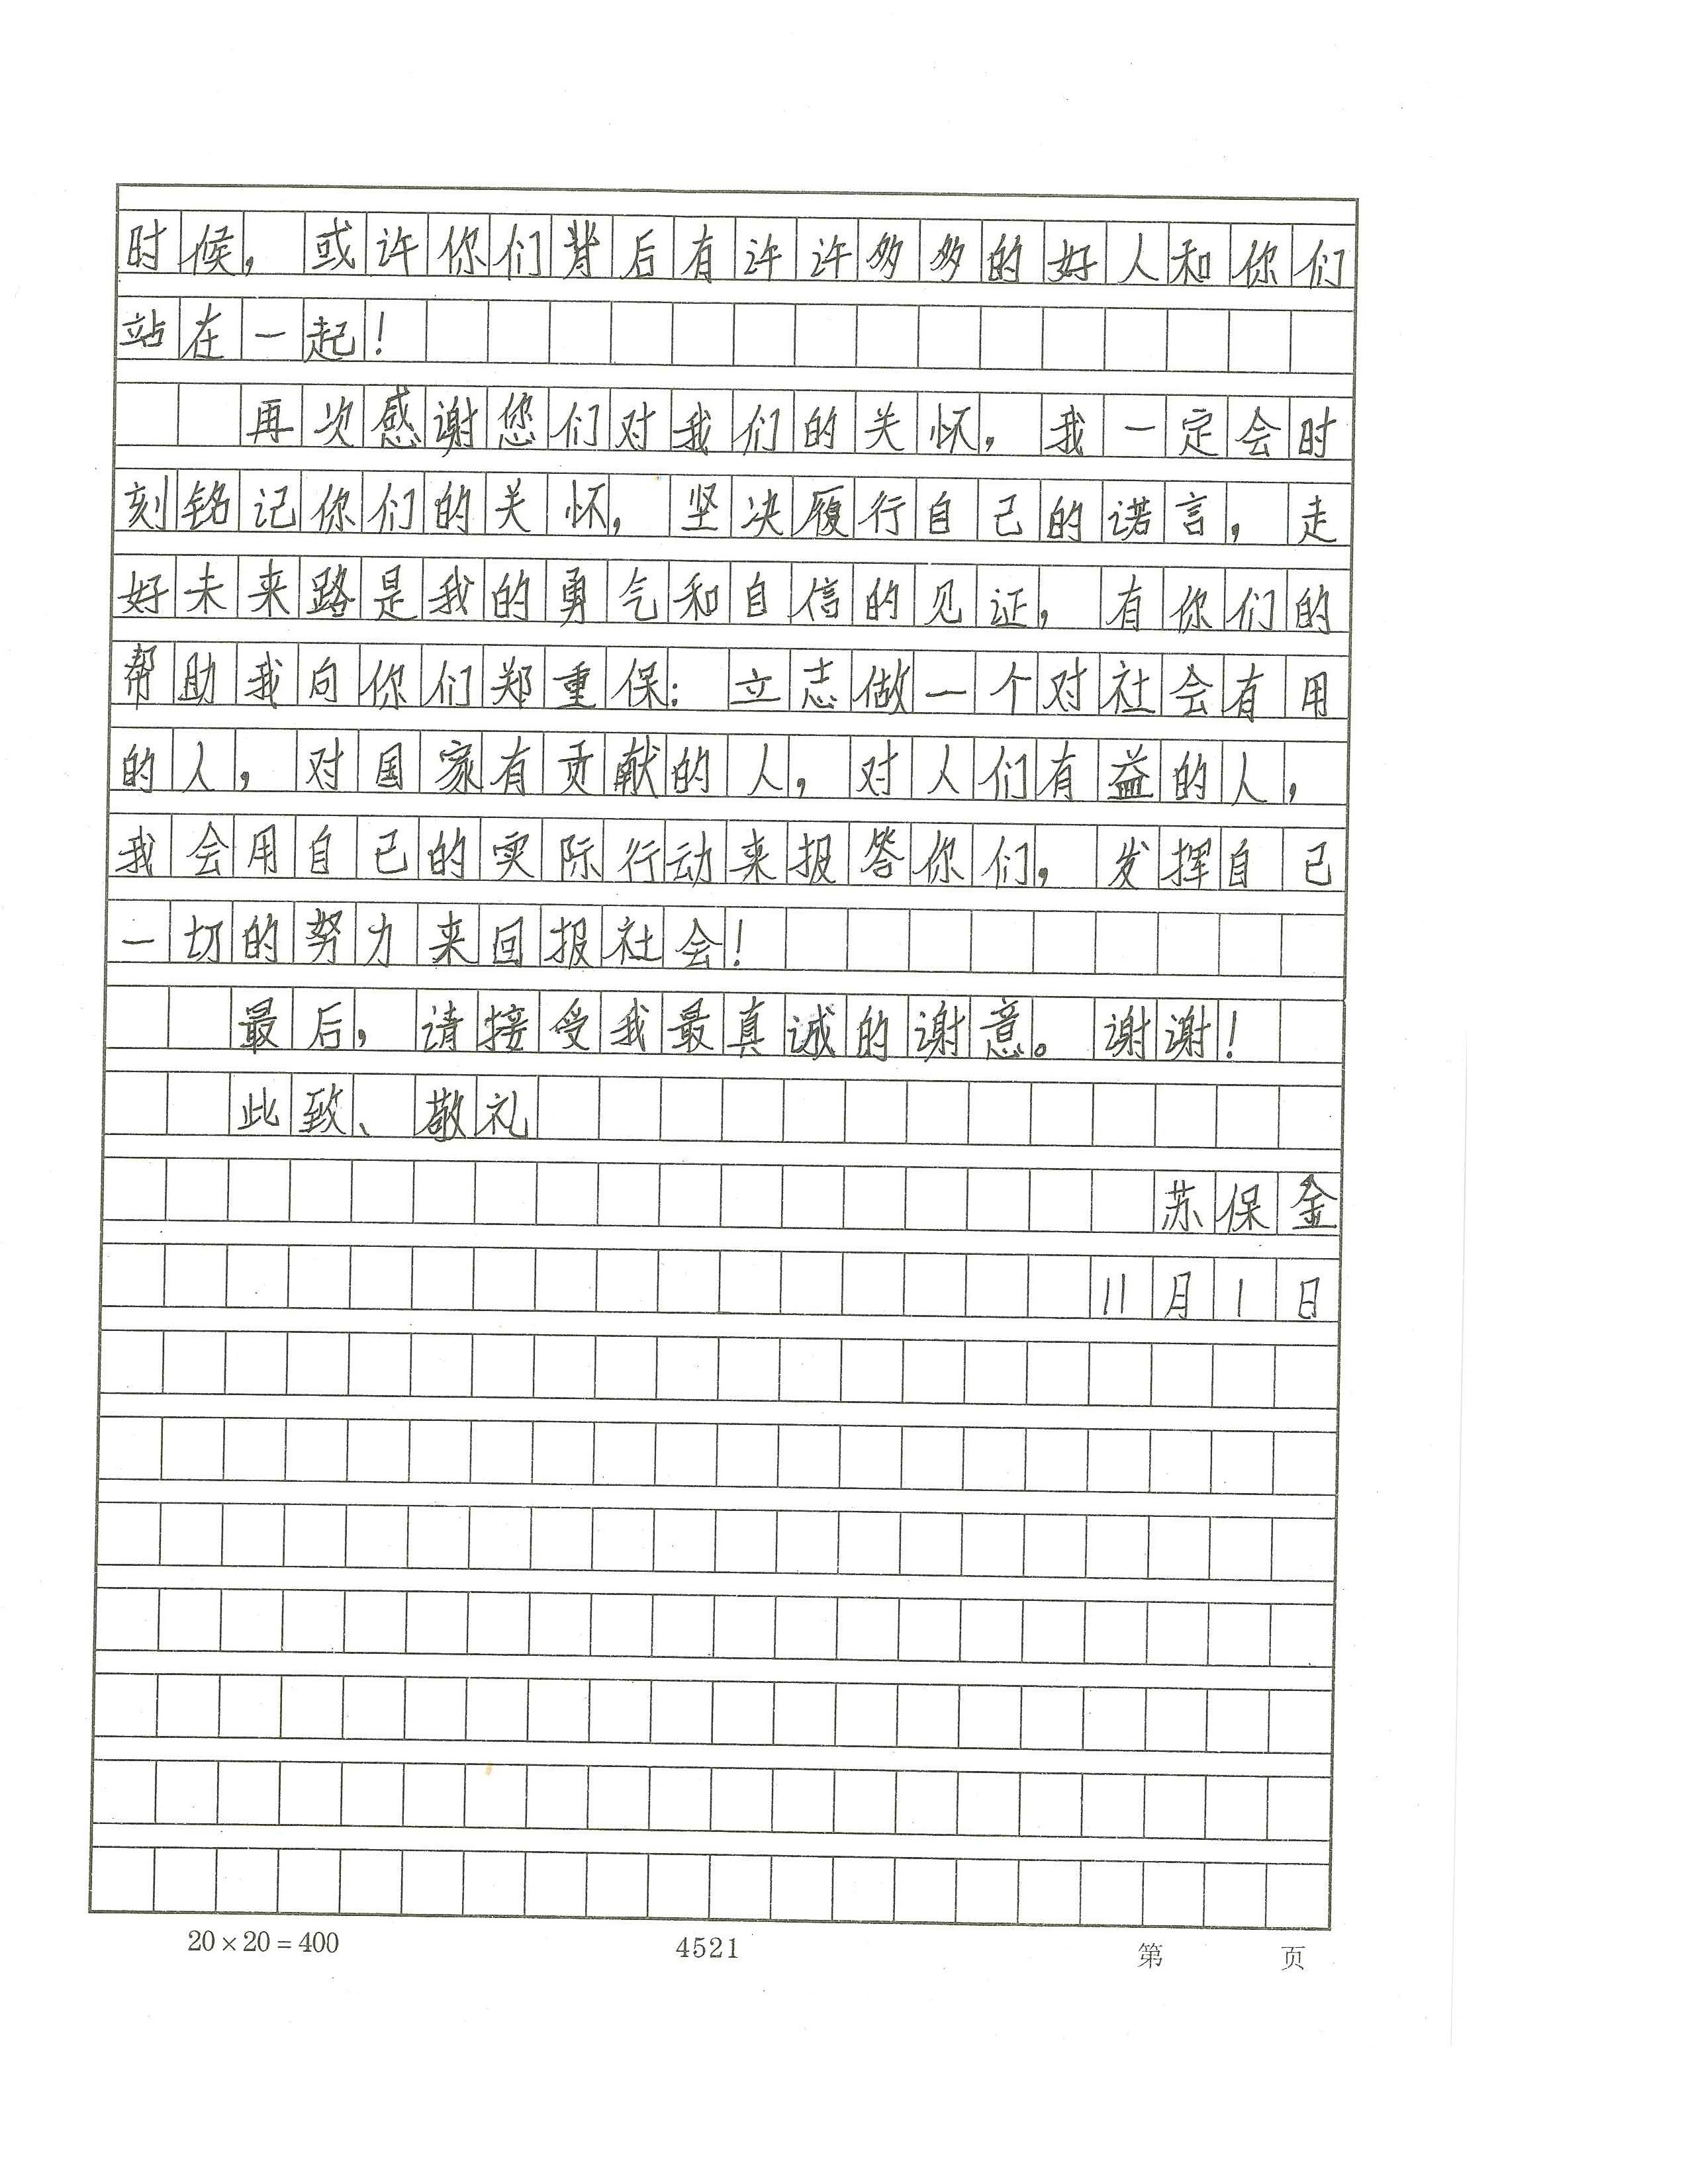 时候，或许你们背后有许许多多的好人和你们
站在一起！
再次感谢您们对我们的关怀，我一定会时
刻铭记你们的关怀，坚决履行自己的诺言，走
好未来路是我的勇气和自信的见证，有你们的
帮助我向你们郑重保：立志做一个对社会有用
的人，对国家有贡献的人，对人们有益的人，
我会用自己的实际行动来报答你们，发挥自己
一切的努力来回报社会！
最后，请接受我最真诚的谢意。谢谢！
此致、敬礼
苏保金
11月1日
20×20=400 4521 第 页